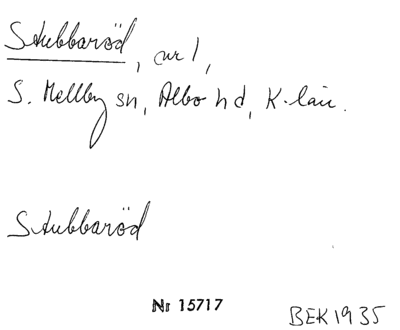 Stubbaröd, ar 1,
S. Mellby sn, Albo hd, K-län.
Stubbaröd
Nr 15717
BEK 1935